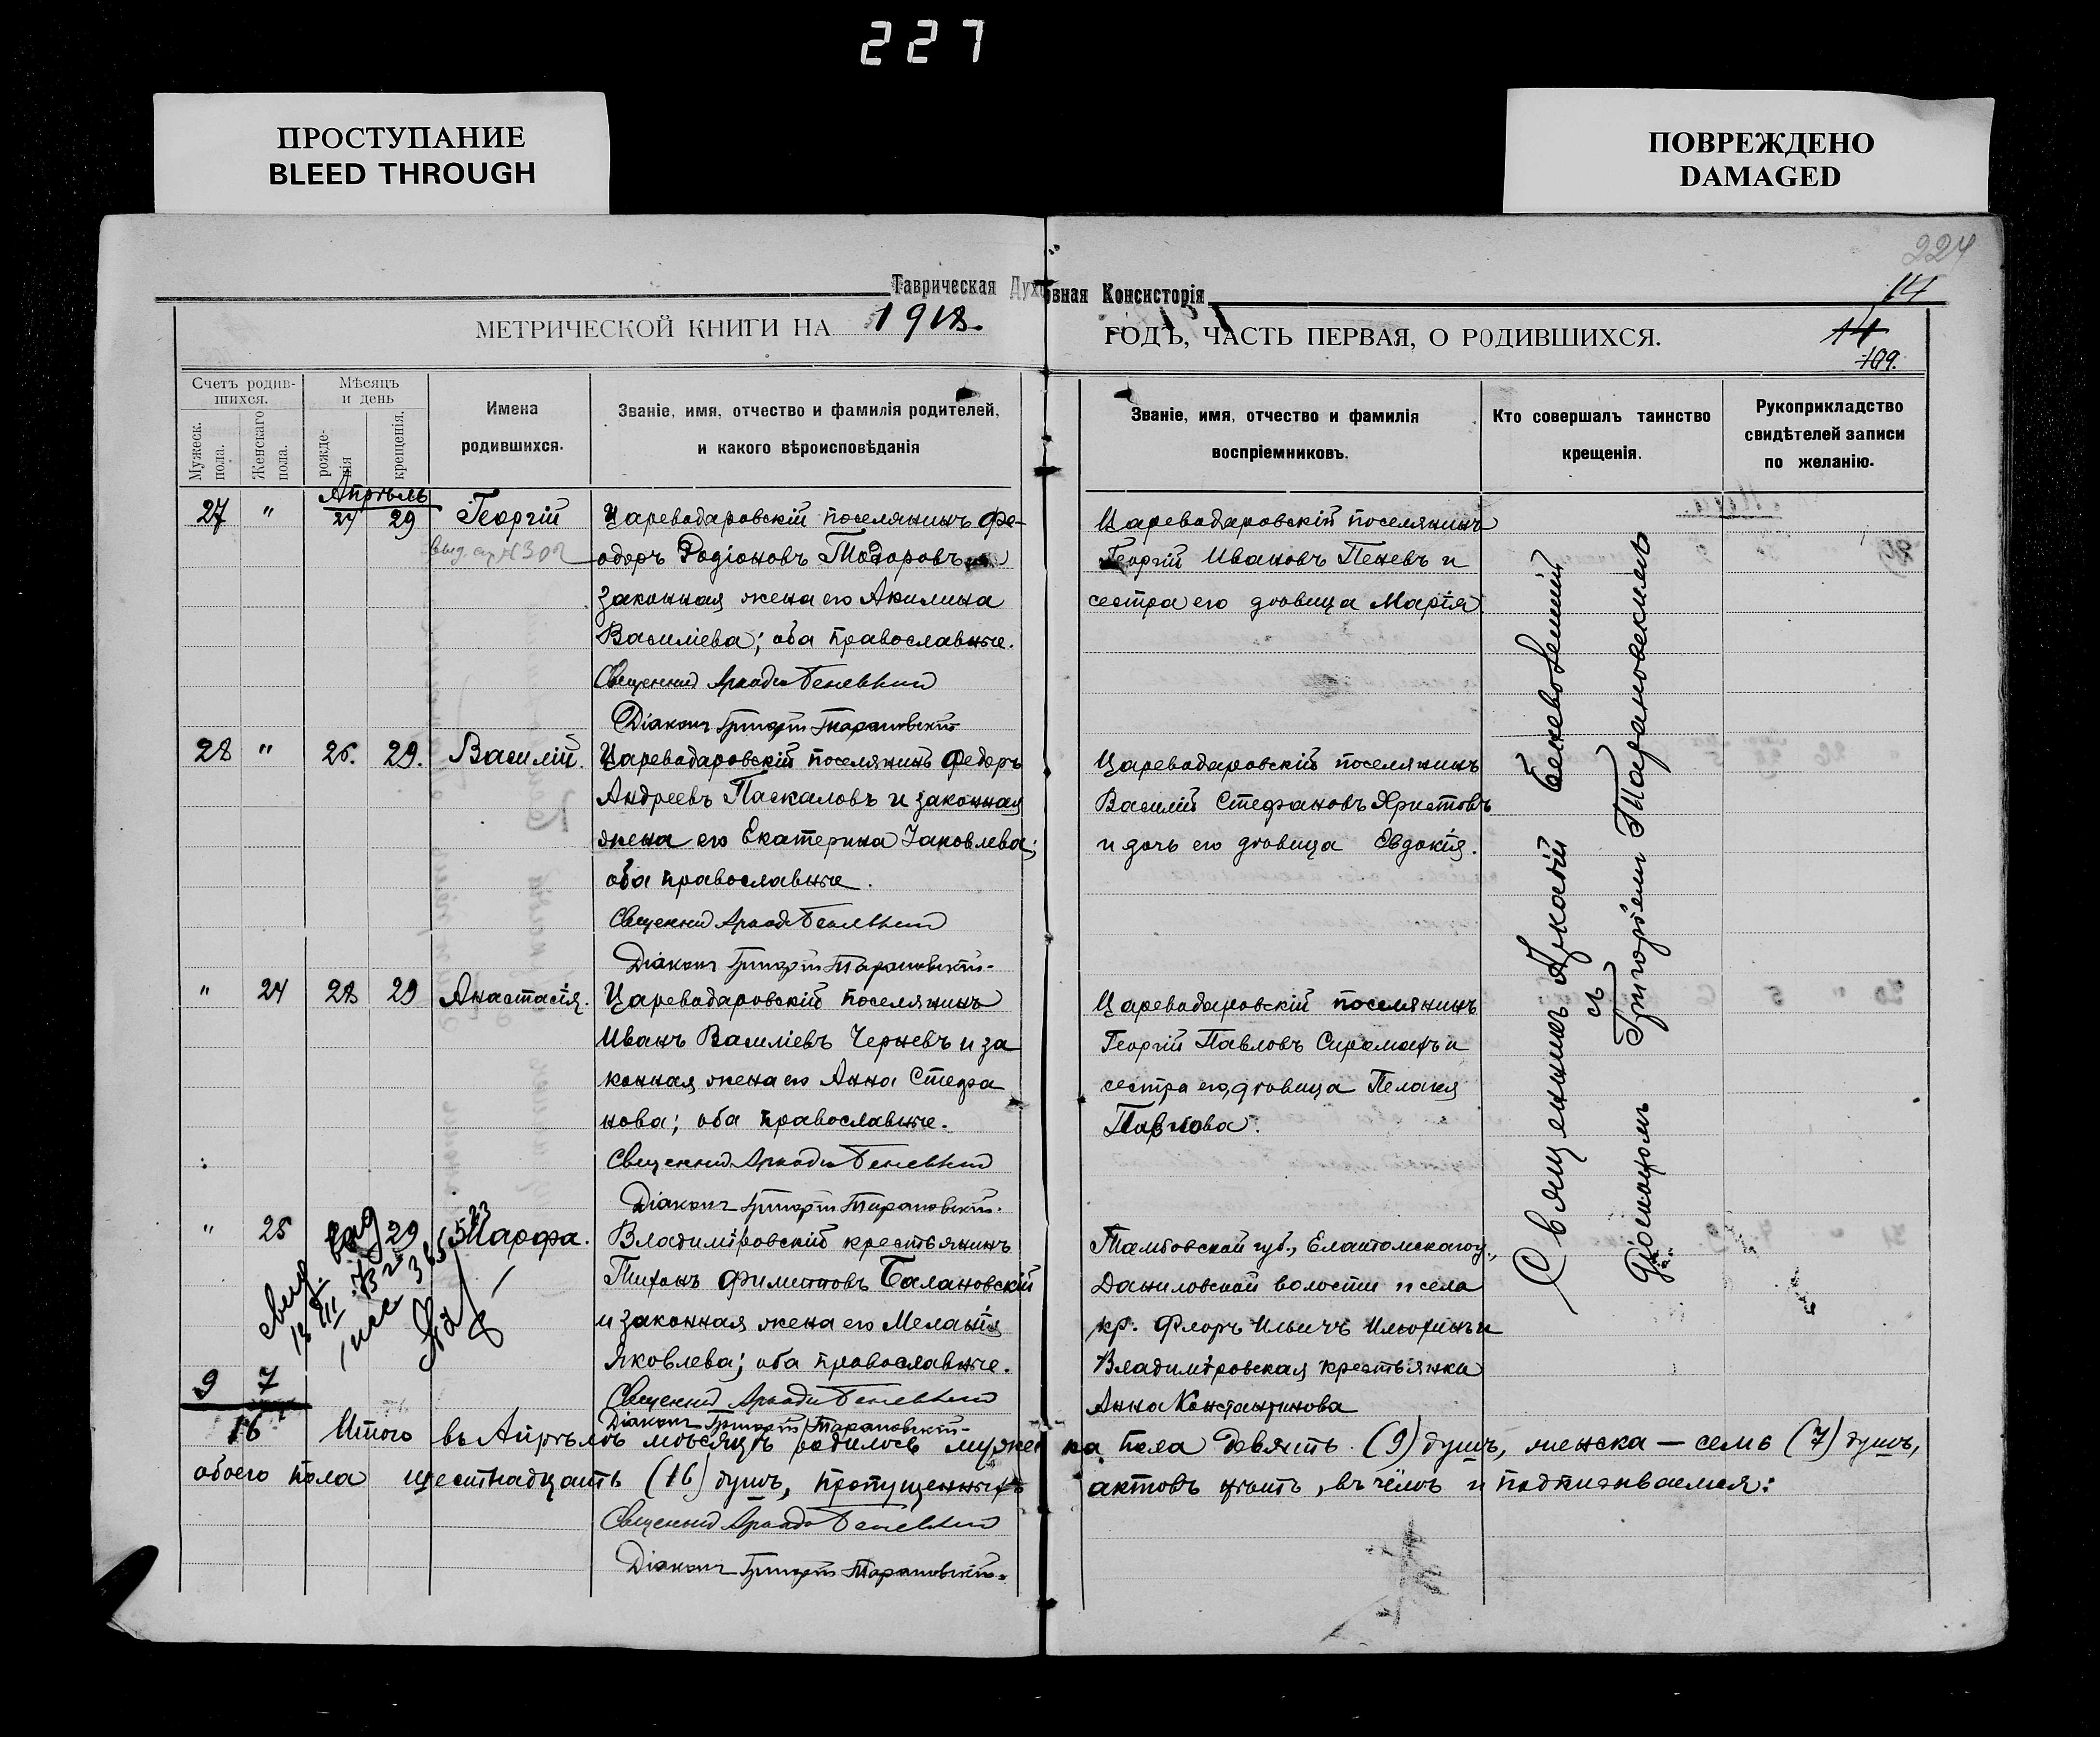 227
ПРОСТУПАНИЕ
BLEED THROUGH
ПОВРЕЖДЕНО
DAMAGED
224
Таврическая Духовная Консисторія
14
МЕТРИЧЕСКОЙ КНИГИ НА 1918. ГОДЪ, ЧАСТЬ ПЕРВАЯ, О РОДИВШИХСЯ.
14
199.
Счетъ родив-
шихся.
Мужеск. пола.
Женскаго пола.
Мѣсяцъ
и день
рожде-
нія
крещенія.
Имена
родившихся.
Званіе, имя, отчество и фамилія родителей,
и какого вѣроисповѣданія
Званіе, имя, отчество и фамилія
воспріемниковъ.
Кто совершалъ таинство
крещенія.
Рукоприкладство
свидѣтелей записи
по желанію.
Апрѣль
27 " 27 29 Георгій
Цареводаровскій поселянинъ Фе-
одоръ Родіоновъ Тодоровъ и
законная жена его Акилина
Василіева; оба православные.
Священникъ Аркадій
Діаконъ Григорій Тарановскій
Цареводаровскій поселянинъ
Георгій Ивановъ Пеневъ и
сестра его дѣвица Марія
28 " 26. 29. Василій.
Цареводаровскій поселянинъ Федоръ
Андреевъ Паскаловъ и законная
жена его Екатерина Іаковлева;
оба православные.
Священникъ Аркадій
Діаконъ Григорій Тарановскій.
Цареводаровскій поселянинъ
Василій Стефановъ Христовъ
и дочь его дѣвица Евдокія.
" 24 28 29 Анастасія.
Цареводаровскій поселянинъ
Иванъ Василіевъ Черневъ и за
конная жена его Анна Стефа
нова; оба православные.
Священникъ Аркадій
Діаконъ Григорій Тарановскій.
Цареводаровскій поселянинъ
Георгій Павловъ Сираманъ и
сестра его, дѣвица Пелакея
Павлова.
" 25 29 Марфа.
Владиміровскій крестьянинъ
Тихонъ Филипповъ Балановскій
и законная жена его Меланія
Яковлева; оба православные.
Священникъ Аркадій
Діаконъ Григорій Тарановскій.
Тамбовской губ., Елатомскаго у.,
Даниловской волости и села
кр. Флоръ Ильичъ Илюхинъ и
Владиміровская крестьянка
Анна Константинова
Священникъ Аркадій
съ
Діакономъ Григоріемъ Тарановскимъ
9 7
16 Итого въ Апрѣлѣ мѣсяцѣ родилось мужес ка пола девять (9) душъ, женска — семь (7) душъ,
обоего пола шестнадцать (16) душъ, пропущенныхъ актовъ нѣтъ, въ чёмъ и подписываемся:
Священникъ Аркадій
Діаконъ Григорій Тарановскій.